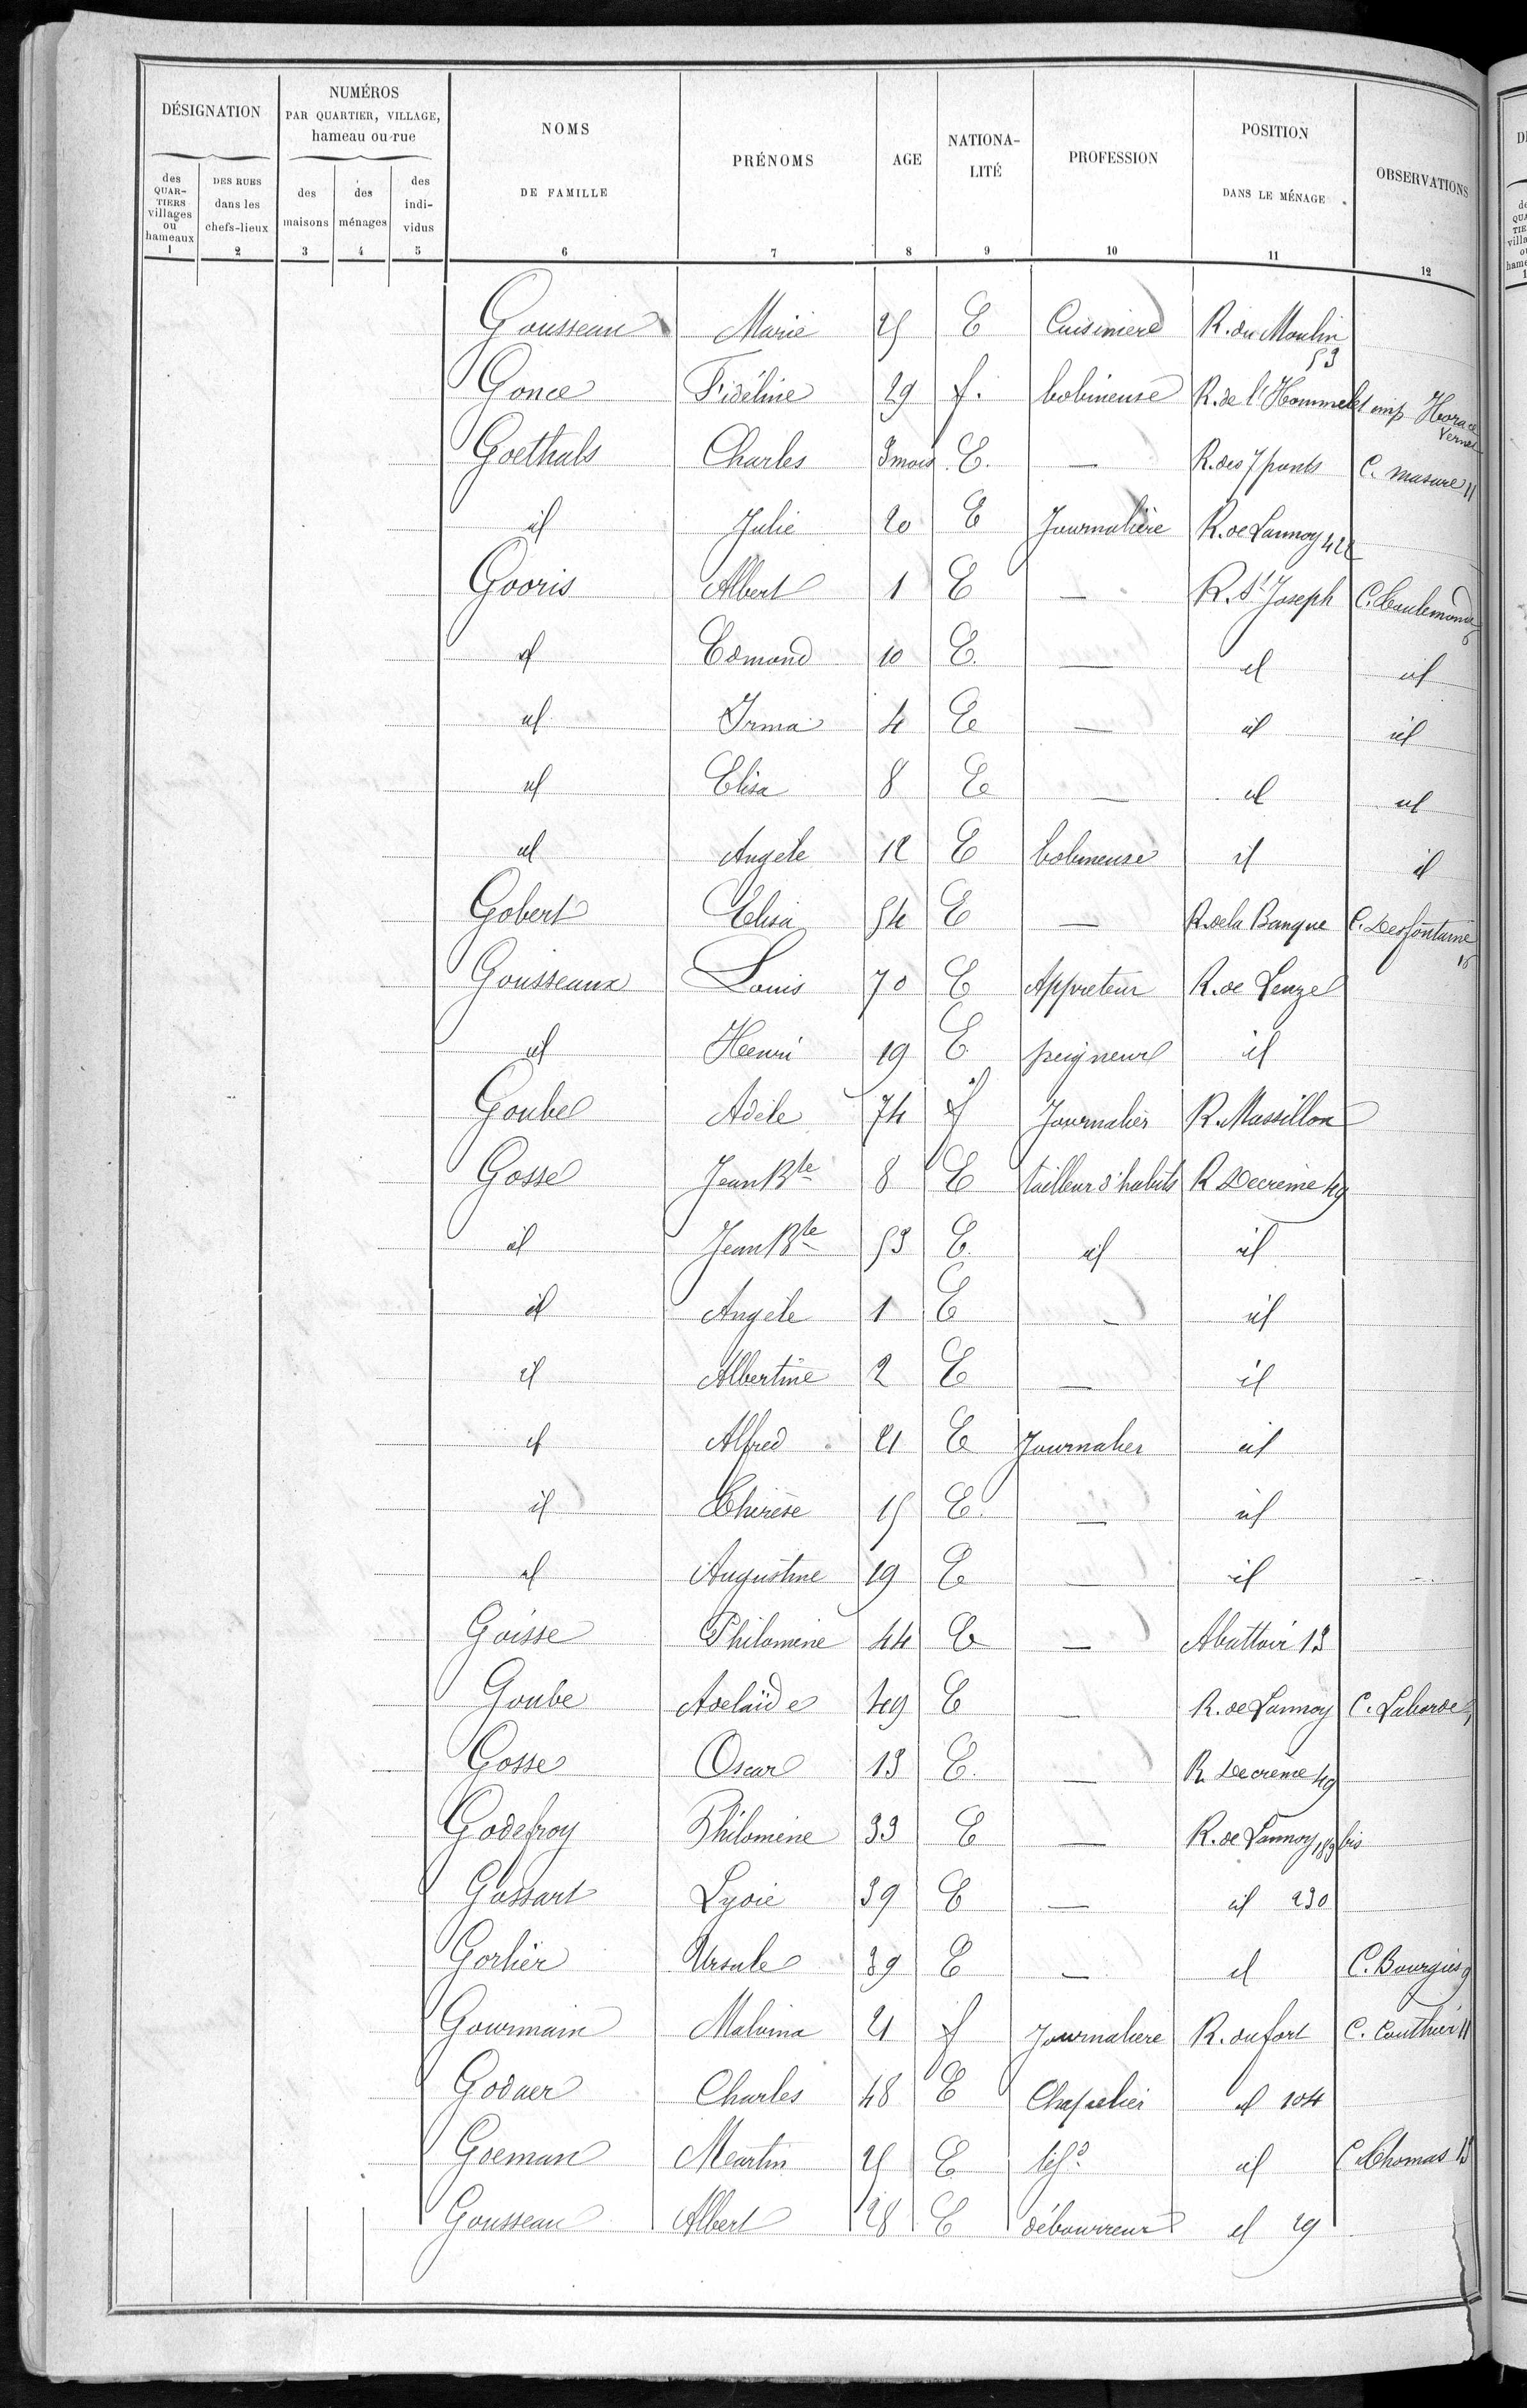 DÉSIGNATION
NUMÉROS
PAR QUARTIER, VILLAGE,
hameau ou rue
NOMS
DE FAMILLE
PRÉNOMS
AGE
NATIONA-
LITÉ
PROFESSION
POSITION
DANS LE MÉNAGE
OBSERVATIONS
des QUAR-TIERS villages ou hameaux
DES RUES dans les chefs-lieux
des maisons
des ménages
des indi-vidus
1 2 3 4 5 6 7 8 9 10 11 12
Gousseau Marie 25 E Cuisinière R. du Moulin 53
Gonce Fidéline 29 f. bobineuse R. de l'Hommelet imp Horace Vernet
Goethals Charles 3 mois E. — R. des 7 ponts C. Masure 11
id Julie 20 E Journalière R. de Lannoy 422
Gooris Albert 1 E — R. St Joseph
id Edmond 10 E. — id id
id Irma 4 E — id id
id Elisa 8 E — id id
id Angèle 12 E bobineuse id id
Gobert Elisa 54 E — R. de la Banque C. Desfontaine 15
Gousseaux Louis 70 E Appreteur R. de Leuze
id Henri 19 E. peigneur id
Goube Adèle 74 f Journalier R. Massillon
Gosse Jean Bte 8 E tailleur d'habits R Decrème 49
id Jean Bte 53 E. id id
id Angèle 1 E — id
id Albertine 2 E — id
id Alfred 21 E Journalier id
id Thérèse 15 E. — id
id Augustine 19 E — id
Goisse Philomène 44 E — Abattoir 13
Goube Adelaïde 49 E — R. de Lannoy C. Laborde
Gosse Oscar 13 E. — R. Decrème 49
Godefroy Philomène 33 E — R. de Lannoy 183 bis
Gossart Lydie 39 E — id 230
Gorlier Ursule 39 E — id C. Bourgies 9
Gourmain Malvina 21 f Journalière R. du fort C. Couthier 11
Goduer Charles 48 E Chapelier id 104
Goeman Martin 25 E id C. Thomas 13
Gousseau Albert 28 E débourreur id 29